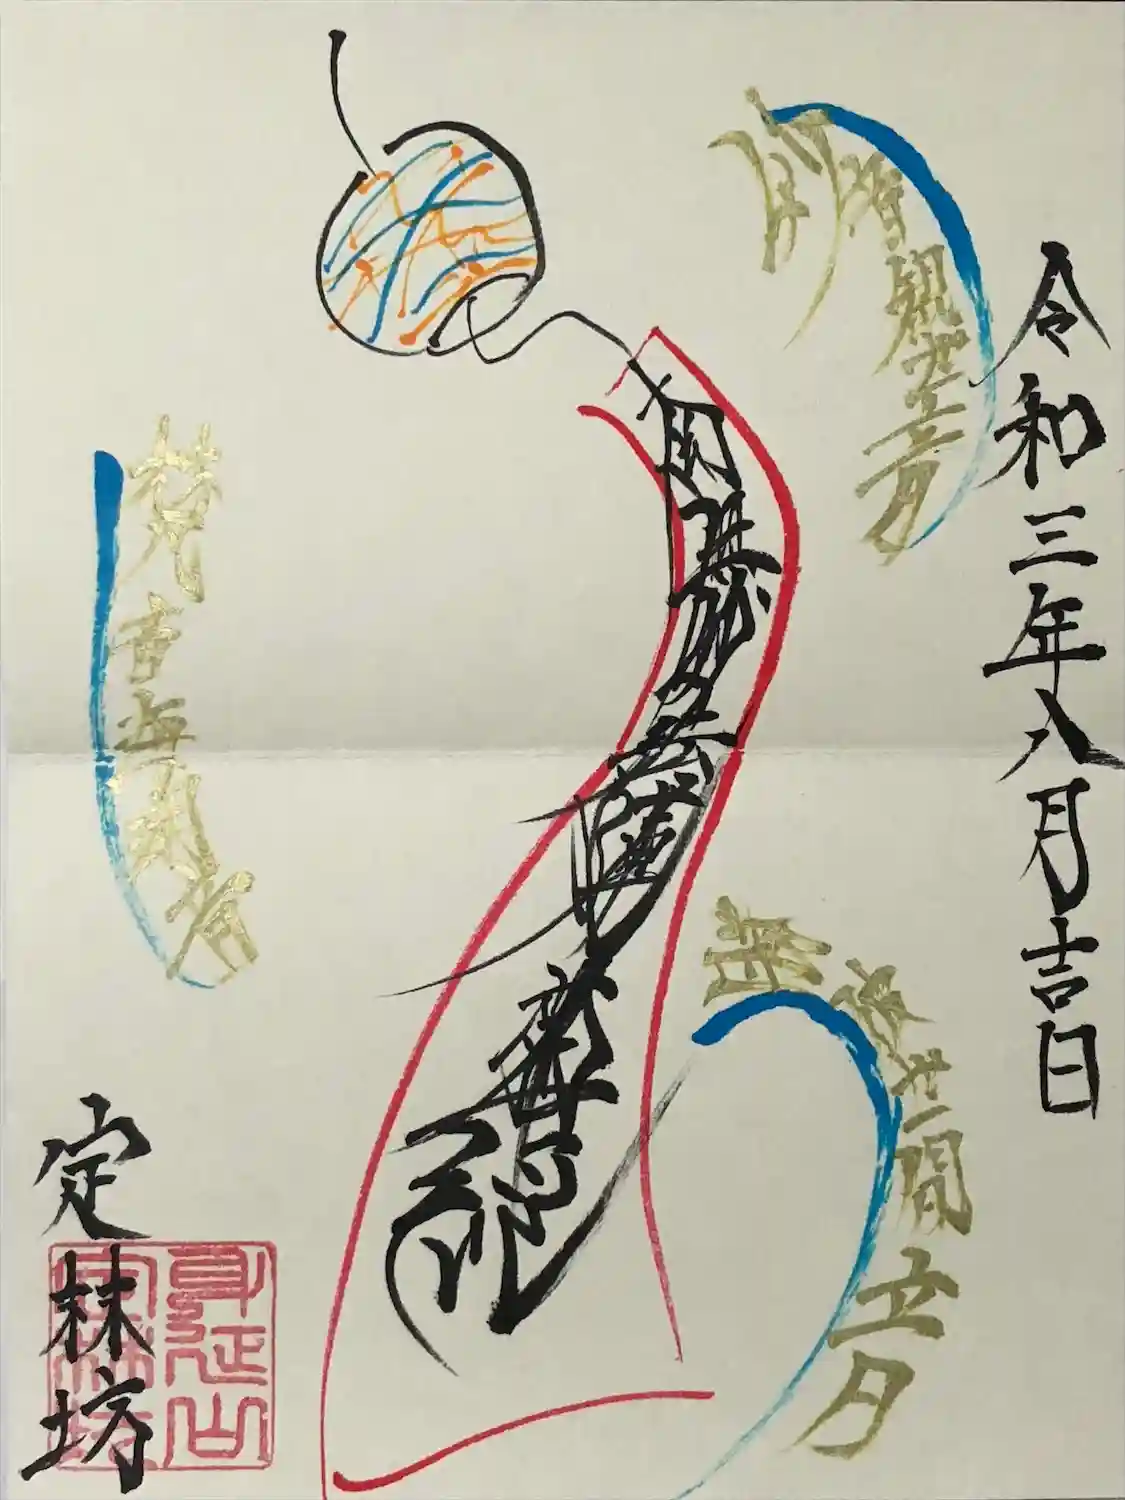 令和三年八月吉日
妙音観世音
勝彼世間音
南無妙法蓮華経
梵音海潮音
定林坊
身延山
定林坊